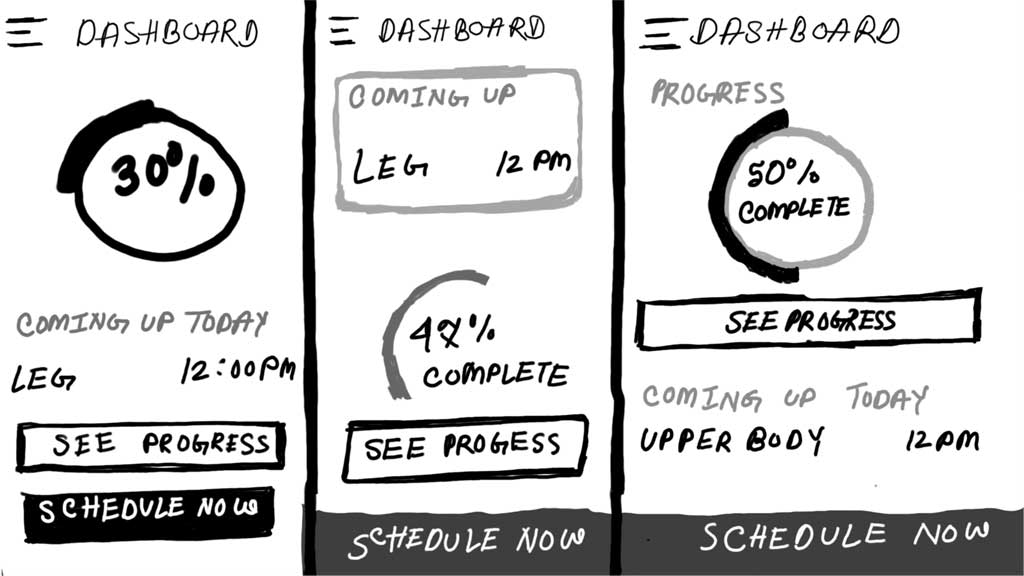 DASHBOARD
30%
COMING UP TODAY
LEG 12:00PM
SEE PROGRESS
SCHEDULE NOW
DASHBOARD
COMING UP
LEG 12 PM
%
COMPLETE
SEE PROGESS
SCHEDULE NOW
DASHBOARD
PROGRESS
50%
COMPLETE
SEE PROGRESS
COMING UP TODAY
UPPER BODY 12PM
SCHEDULE NOW